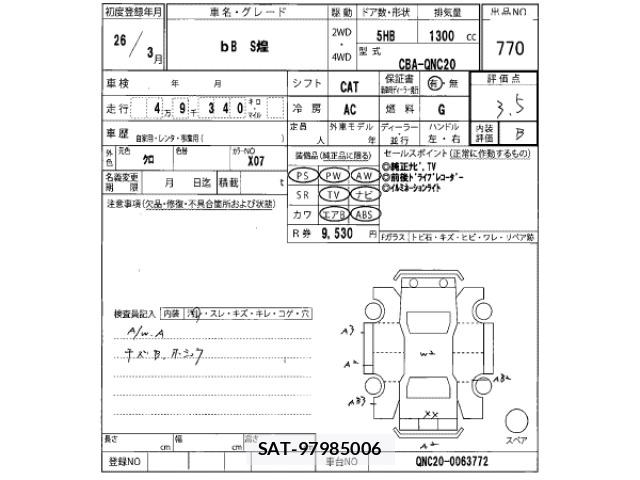 初度登録年月 車名・グレード 駆動 ドア数・形状 排気量 出品NO
26/3月 bB S煌 2WD・4WD 5HB 1300cc 770
型式 CBA-QNC20
車検 年 月 シフト CAT 保証書 有・無 評価点 3.5
走行 4万9千340 キロ・マイル 冷房 AC 燃料 G 内装評価 B
車歴 自家用・レンタ・ 定員 人 外車モデル 年 ディーラー・並行 ハンドル 左・右
外色 元色 クロ 色替 カラーNO X07 装備品(純正品に限る) セールスポイント(正常に作動するもの)
PS PW AW ◎純正ナビ,TV
名義変更期限 月 日迄 積載 t SR TV ナビ ◎前後ドライブレコーダー
◎イルミネーションライト
注意事項(欠品・修復・不具合箇所および状態) カワ エアB ABS
R券 9,530円 Fガラス トビ石・キズ・ヒビ・ワレ・リペア跡
検査員記入 内装 汚れ・スレ・キズ・キレ・コゲ・穴
A/W.A
A3
W2
A2
AB2
AB3
XX
A2
スペア
長さ cm 幅 cm 高さ
SAT-97985006
登録NO 車台NO QNC20-0063772